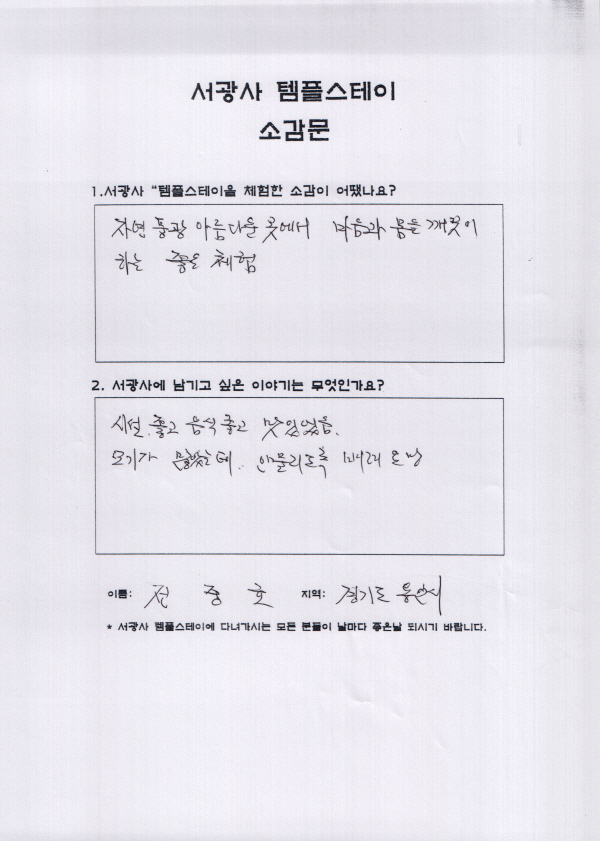 서광사 템플스테이
소감문
1.서광사 "템플스테이을 체험한 소감이 어땠나요?
자연 풍광 아름다운 곳에서 마음과 몸을 깨끗이
하는 좋은 체험
2. 서광사에 남기고 싶은 이야기는 무엇인가요?
시설.좋고 음식 좋고 맛있었음.
모기가 안물리도록
이름: 전 중 호 지역: 경기도 용인시
* 서광사 템플스테이에 다녀가시는 모든 분들이 날마다 좋은날 되시기 바랍니다.